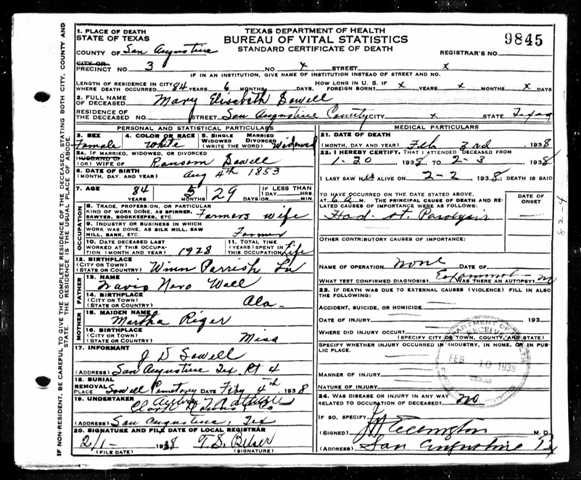 TEXAS DEPARTMENT OF HEALTH
BUREAU OF VITAL STATISTICS
STANDARD CERTIFICATE OF DEATH
1. PLACE OF DEATH
STATE OF TEXAS
COUNTY OF San Augustine
REGISTRAR'S NO.
9845
PRECINCT NO. 3 NO. x x
IF IN AN INSTITUTION, GIVE NAME OF INSTITUTION INSTEAD OF STREET AND NO.
LENGTH OF RESIDENCE IN CITY
WHERE DEATH OCCURRED 84 YEARS 6 MONTHS DAYS HOW LONG IN U.S. IF FOREIGN BORN? x YEARS x MONTHS x DAYS
2. FULL NAME OF DECEASED Mary Elisabeth Sowell
RESIDENCE OF THE DECEASED NO. STREET San Augustine County CITY x STATE Texas
PERSONAL AND STATISTICAL PARTICULARS
3. SEX Female
4. COLOR OR RACE White
5. SINGLE MARRIED WIDOWED DIVORCED (WRITE THE WORD) Widowed
5A. IF MARRIED, WIDOWED, OR DIVORCED
HUSBAND OF (OR) WIFE OF Ransom Sowell
6. DATE OF BIRTH (MONTH, DAY, AND YEAR) Aug 4th 1853
7. AGE 84 YEARS 5 MONTHS 29 DAYS IF LESS THAN 1 DAY
OCCUPATION
8. TRADE, PROFESSION, OR PARTICULAR KIND OF WORK DONE, AS SPINNER, SAWYER, BOOKKEEPER, ETC. Farmers wife
9. INDUSTRY OR BUSINESS IN WHICH WORK WAS DONE, AS SILK MILL, SAW MILL, BANK, ETC. Farmer
10. DATE DECEASED LAST WORKED AT THIS OCCUPATION (MONTH AND YEAR) 1928
11. TOTAL TIME (YEARS) SPENT IN THIS OCCUPATION Life
12. BIRTHPLACE (CITY OR TOWN) (STATE OR COUNTRY) Winn Parrish La
FATHER
13. NAME
14. BIRTHPLACE (CITY OR TOWN) (STATE OR COUNTRY) Ala
MOTHER
15. MAIDEN NAME Martha
16. BIRTHPLACE (CITY OR TOWN) (STATE OR COUNTRY) Miss
17. INFORMANT J D Sowell
(ADDRESS) San Augustine Tex Rt 4
18. BURIAL REMOVAL
PLACE Sowell DATE Feb 4th 1938
19. UNDERTAKER
(ADDRESS) San Augustine Tex
20. SIGNATURE AND FILE DATE OF LOCAL REGISTRAR
1938
(FILE DATE) (SIGNATURE)
MEDICAL PARTICULARS
21. DATE OF DEATH
(MONTH, DAY AND YEAR) Feb 3rd 1938
22. I HEREBY CERTIFY THAT I ATTENDED DECEASED FROM
1-20 1938 TO 2-3 1938
I LAST SAW H ALIVE ON 2-2 1938 DEATH IS SAID
TO HAVE OCCURRED ON THE DATE STATED ABOVE,
THE PRINCIPAL CAUSE OF DEATH AND RELATED CAUSES OF IMPORTANCE WERE AS FOLLOWS:
DATE OF ONSET
Had
OTHER CONTRIBUTORY CAUSES OF IMPORTANCE:
NAME OF OPERATION none DATE OF
WHAT TEST CONFIRMED DIAGNOSIS? WAS THERE AN AUTOPSY?
23. IF DEATH WAS DUE TO EXTERNAL CAUSES (VIOLENCE) FILL IN ALSO THE FOLLOWING:
ACCIDENT, SUICIDE, OR HOMICIDE
DATE OF INJURY 193
WHERE DID INJURY OCCUR?
(SPECIFY CITY OR TOWN, COUNTY, AND STATE)
SPECIFY WHETHER INJURY OCCURRED IN INDUSTRY, IN HOME, OR IN PUBLIC PLACE.
MANNER OF INJURY
NATURE OF INJURY
FEB 10 1938
24. WAS DISEASE OR INJURY IN ANY WAY RELATED TO OCCUPATION OF DECEASED? no
IF SO, SPECIFY
(SIGNED) M. D.
(ADDRESS) San Augustine Tx